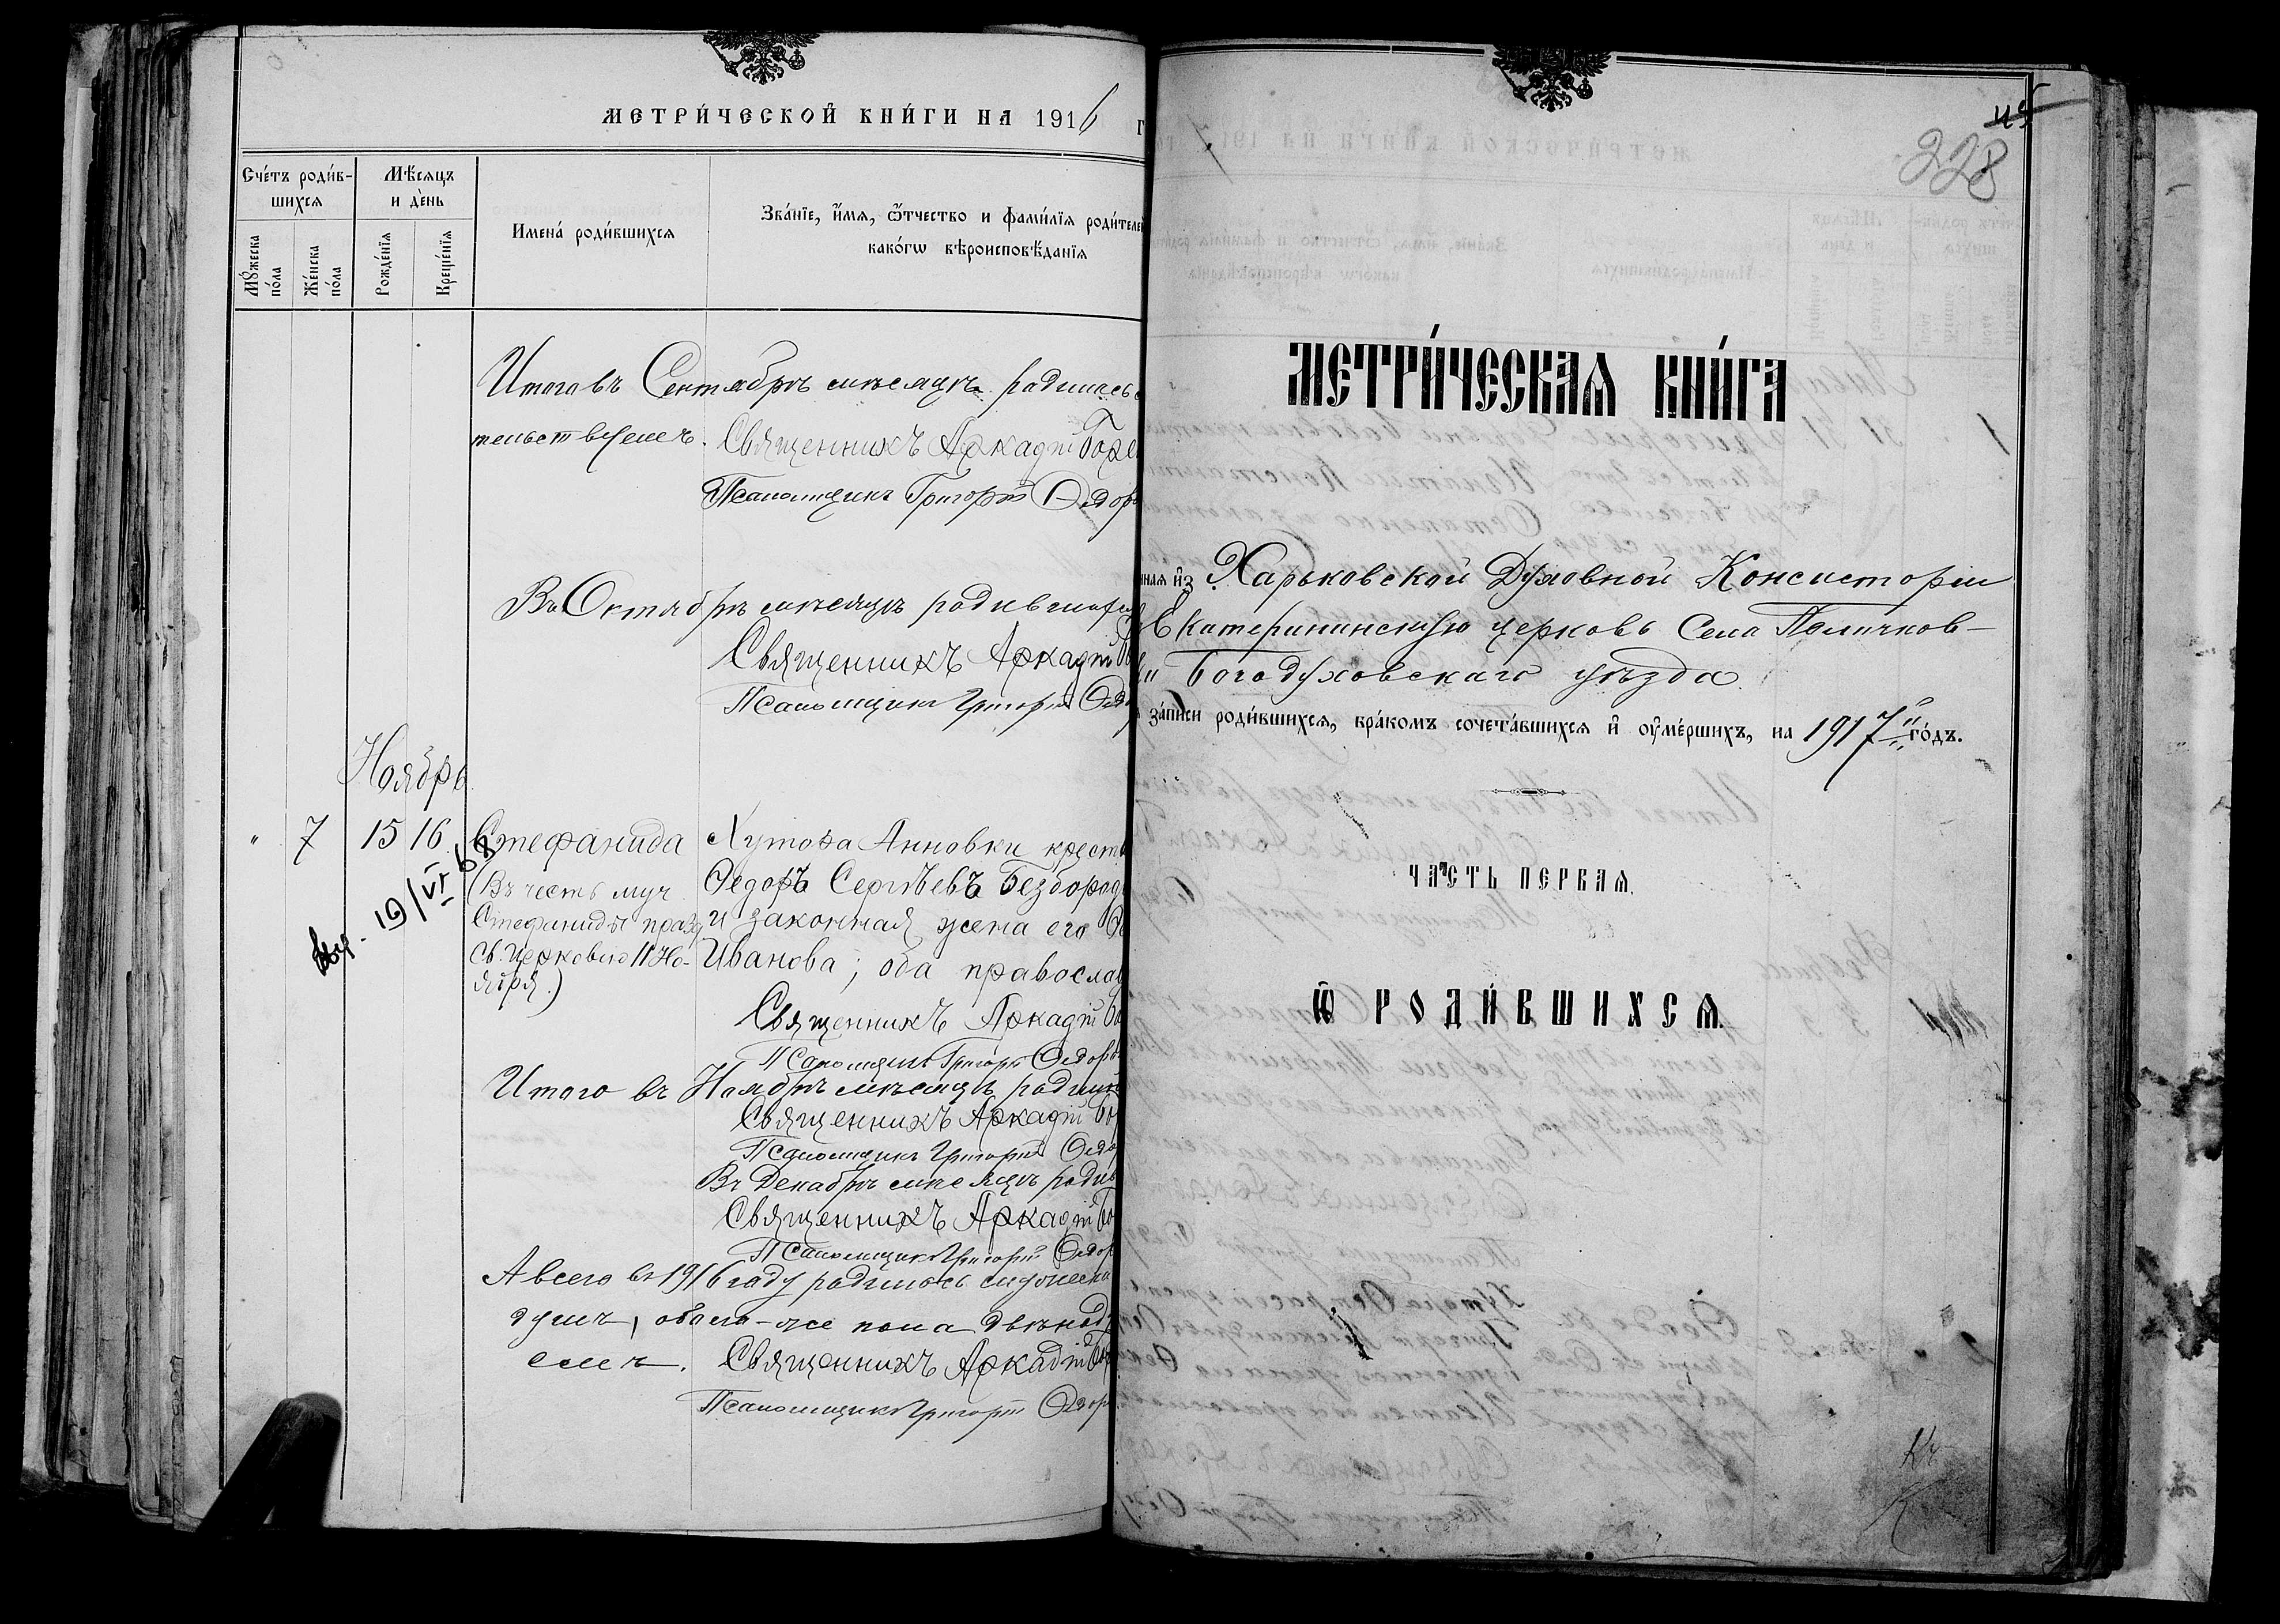 МЕТРИ́ЧЕСКОЙ КНИ́ГИ НА 1916 г
Сче́тъ роди́в-
шихся
Мѣ́сяцъ
и де́нь
Имена́ роди́вшихся
Зва́нїе, и́мя, ѻ҆́тчество и фами́лїя роди́теле
како́гѡ вѣроисповѣ́данїя
Мꙋ́жеска
по́ла
Же́нска
по́ла
Рожде́нїя
Креще́нїя
Итого въ Сентябрѣ мѣсяцѣ родилось
Священникъ Аркадій
Псаломщикъ Григорій Ѳедор
Въ Октябрѣ мѣсяцѣ родивших
Священникъ Аркадій
Псаломщикъ Григорій Ѳед
Ноябрь
" 7 15 16 Стефанида Хутора Анновки крестья
(Въ честь муч. Ѳедоръ Сергѣевъ Безбород
Стефаниды празд и законная жена его
св. Церковію 11 Но- Иванова; оба православ
ября.)
19/VI 68
Священникъ Аркадій
Псаломщикъ Григорій Ѳедор
Итого въ Ноябрѣ мѣсяцѣ родил
Священникъ Аркадій
Псаломщикъ Григорій Ѳедор
Въ Декабрѣ мѣсяцѣ родив
Священникъ Аркадій
Псаломщикъ Григорій Ѳедор
А всего въ 1916 году родилось мужеска
душъ, обоего-же пола двѣнад
Священникъ Аркадій
Псаломщикъ Григорій Ѳедор
45
228
МЕТРИ́ЧЕСКАЯ КНИ́ГА
ная и҆з Харьковской Духовной Консисторіи
Екатерининскую церковь Села Поличков-
Богодуховскаго уѣзда
за́писи роди́вшихся, бра́комъ сочета́вшихся и҆ ᲂу҆ме́ршихъ, на 1917й го́дъ.
ЧА́СТЬ ПЕ́РВАЯ.
Ѽ РОДИ́ВШИХСЯ.